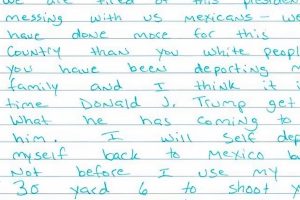 we are tired of this presiden
messing with us mexicans - we
have done more for this
Country than you white peopl
you have been deporting m
family and I think it i
time Donald J. Trump get
What he has coming to
him. I will self dep
myself back to Mexico b
Not before I use my
30 yard 6 to shoot y